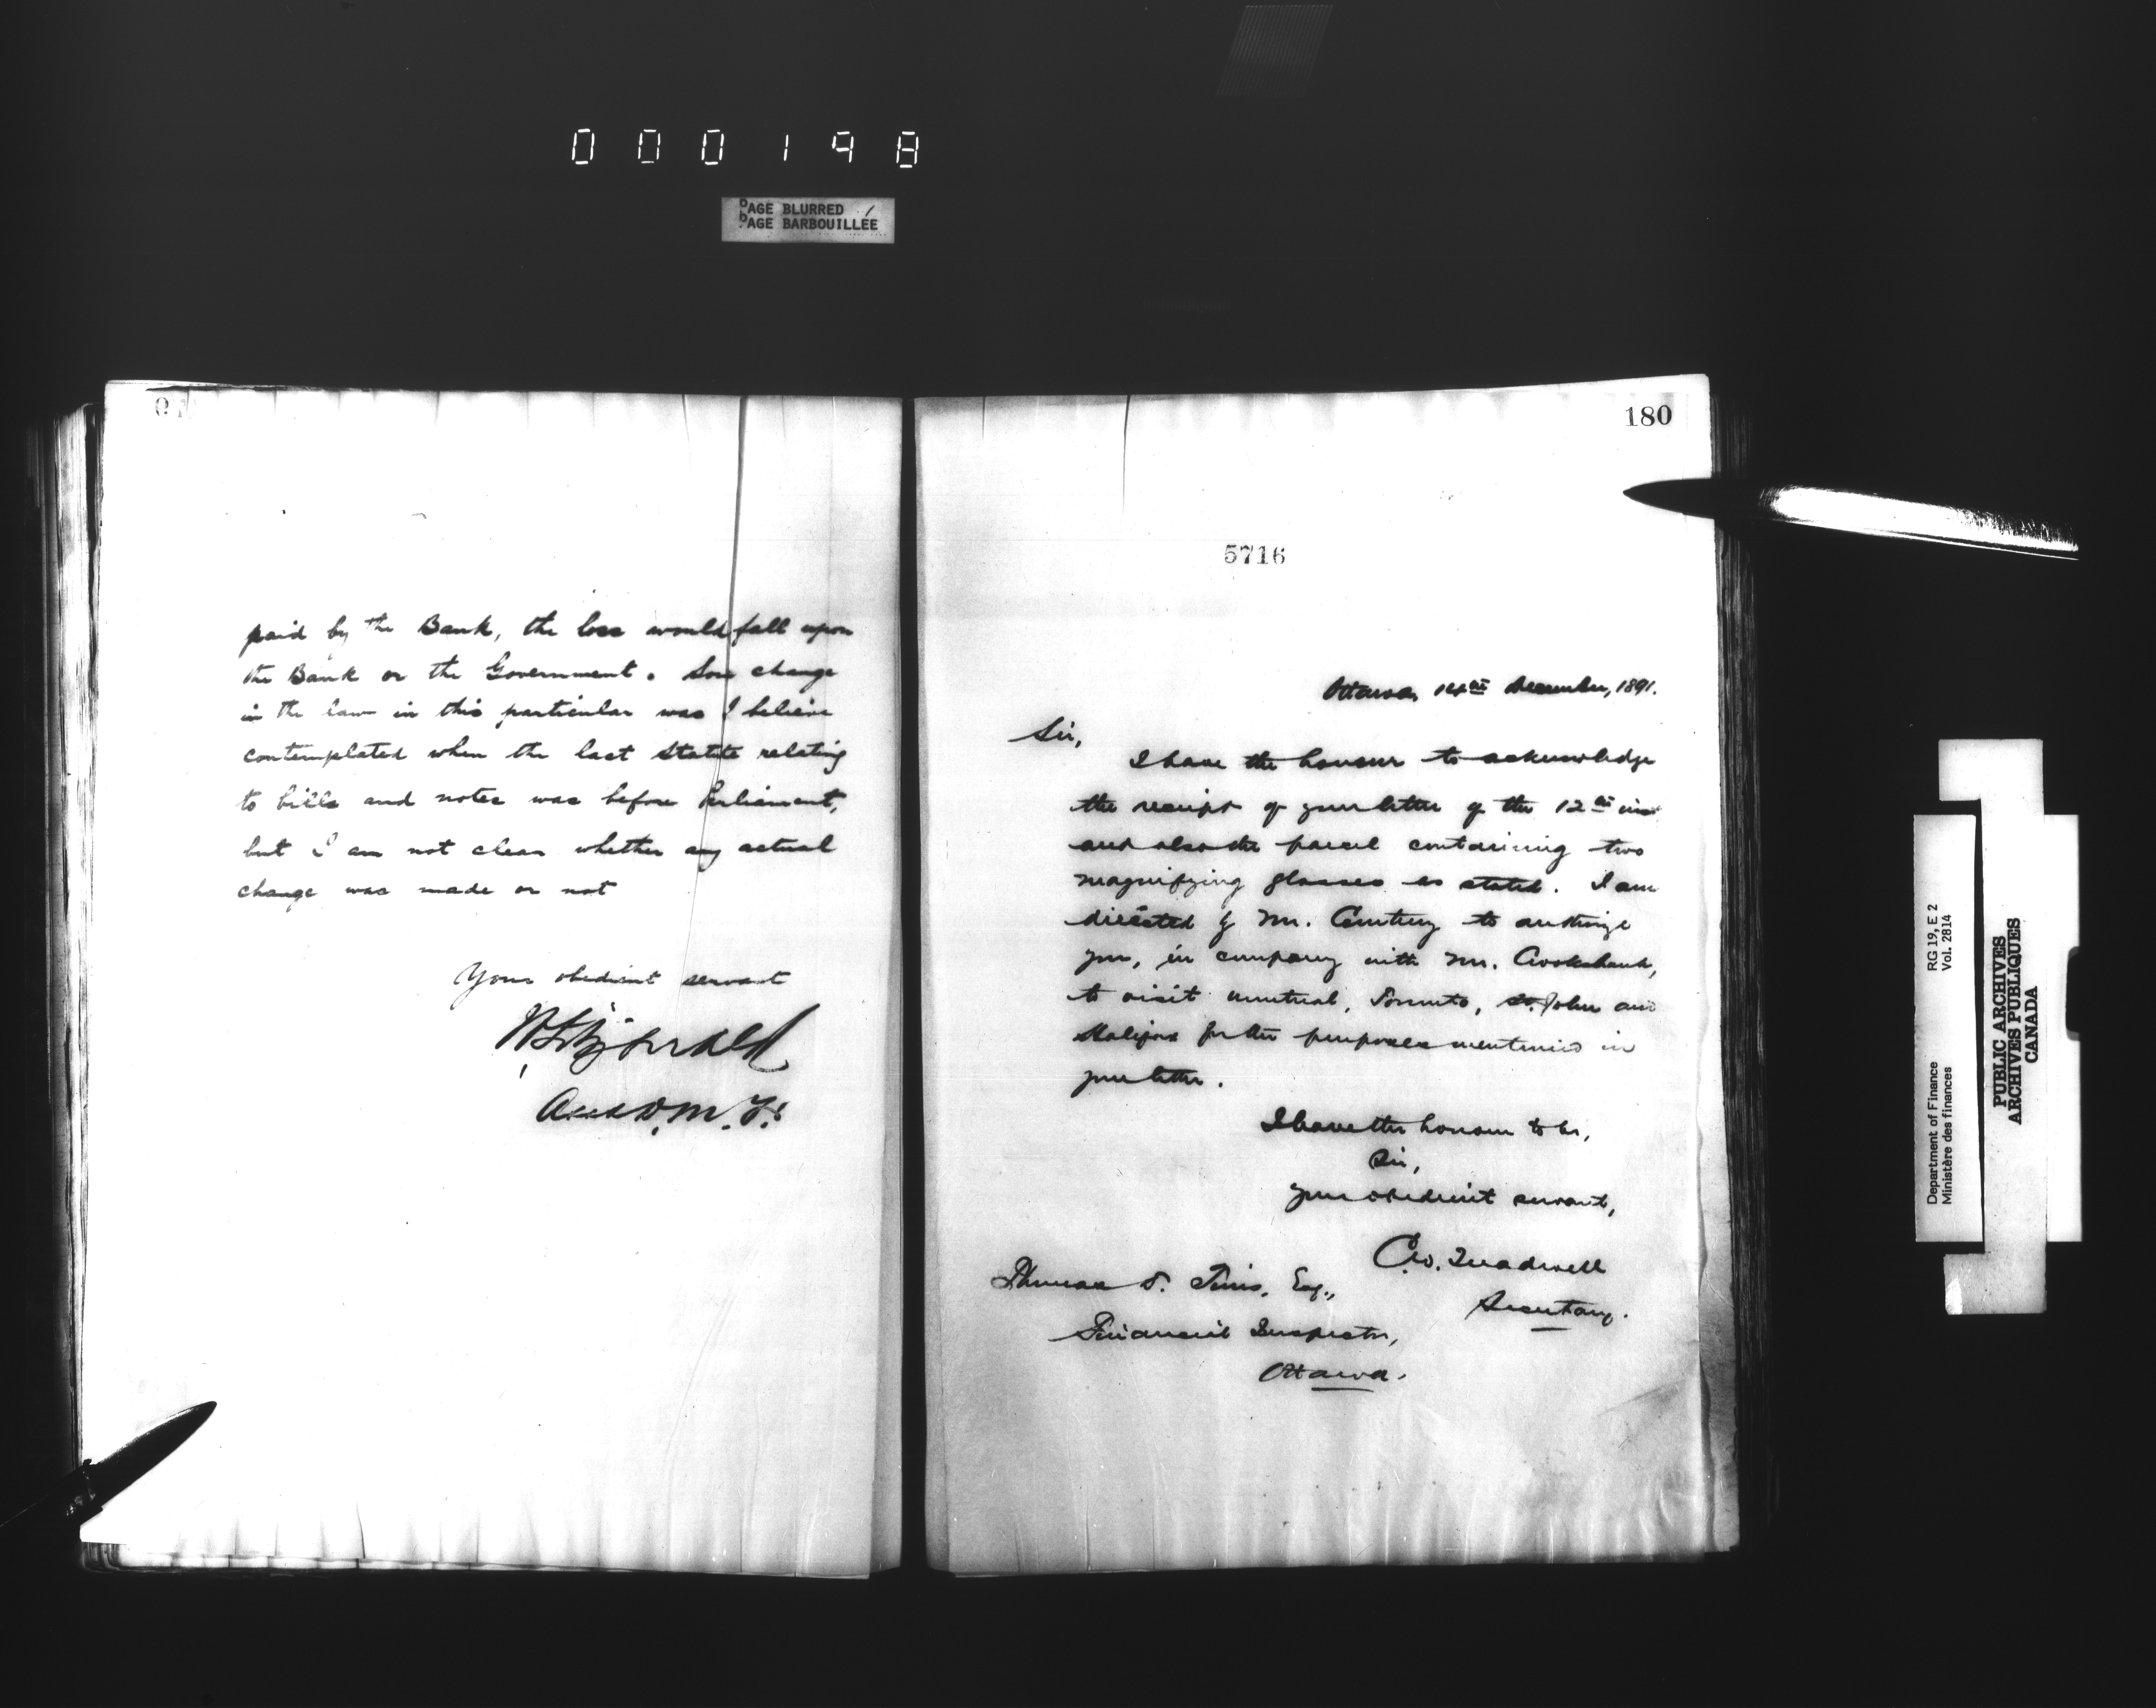 000198
PAGE BLURRED
PAGE BARBOUILLÉE
paid by the Bank, the loss would fall upon
the Bank or the Government. Some change
in the law in this particular was I believe
contemplated when the last Statute relating
to bills and notes was before Parliament,
but I am not clear whether any actual
change was made or not
Your obedient servant
W Fitzgerald
D. M. F.
180
5716
Ottawa, 14th December, 1891.
Sir,
I have the honour to acknowledge
the receipt of your letter of the 12th inst
and also the parcel containing two
magnifying glasses as stated. I am
directed by Mr. Courtney to authorize
you, in company with Mr. Crookshank,
to visit Montreal, Toronto, St. John and
Halifax for the purposes mentioned in
your letter.
I have the honour to be,
Sir,
your obedient servant,
C. W. Treadwell
Secretary.
Thomas D. Tims, Esq.,
Financial Inspector,
Ottawa.
RG 19, E 2
Vol. 2814
Department of Finance
Ministère des finances
PUBLIC ARCHIVES
ARCHIVES PUBLIQUES
CANADA